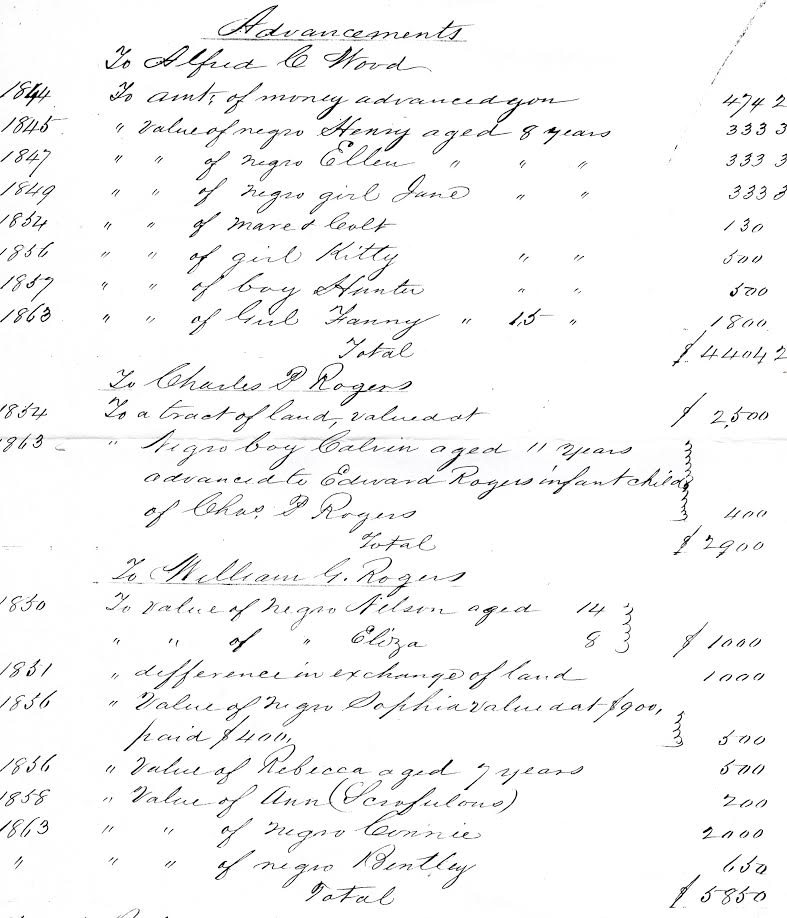 Advancements
To Alfred C Wood
1844 To amt, of money advanced you 474 2
1845 " Value of negro Henry aged 8 years 333 3
1847 " " of negro Ellen " " " 333 3
1849 " " of negro girl Jane " " 333 3
1854 " " of mare & Colt 130
1856 " " of girl Kitty " " 500
1857 " " of boy Hunter " " 500
1863 " " of Girl Fanny " 15 " 1800
Total $ 4404 2
To Charles P Rogers
1854 To a tract of land, valued at $ 2,500
1863 " Negro boy Calvin aged 11 years
advanced to Edward Rogers infant child
of Chas. P Rogers 400
Total $ 2900
To William G. Rogers
1850 To value of negro Nelson aged 14
" " of " Eliza 8 $ 1000
1851 " difference in exchange of land 1000
1856 " Value of negro Sophia valued at $900,
paid $400, 500
1856 " Value of Rebecca aged 7 years 500
1858 " Value of Ann (Scrofulous) 200
1863 " " of negro Connie 2000
" " " of negro Bentley 650
Total $ 5850